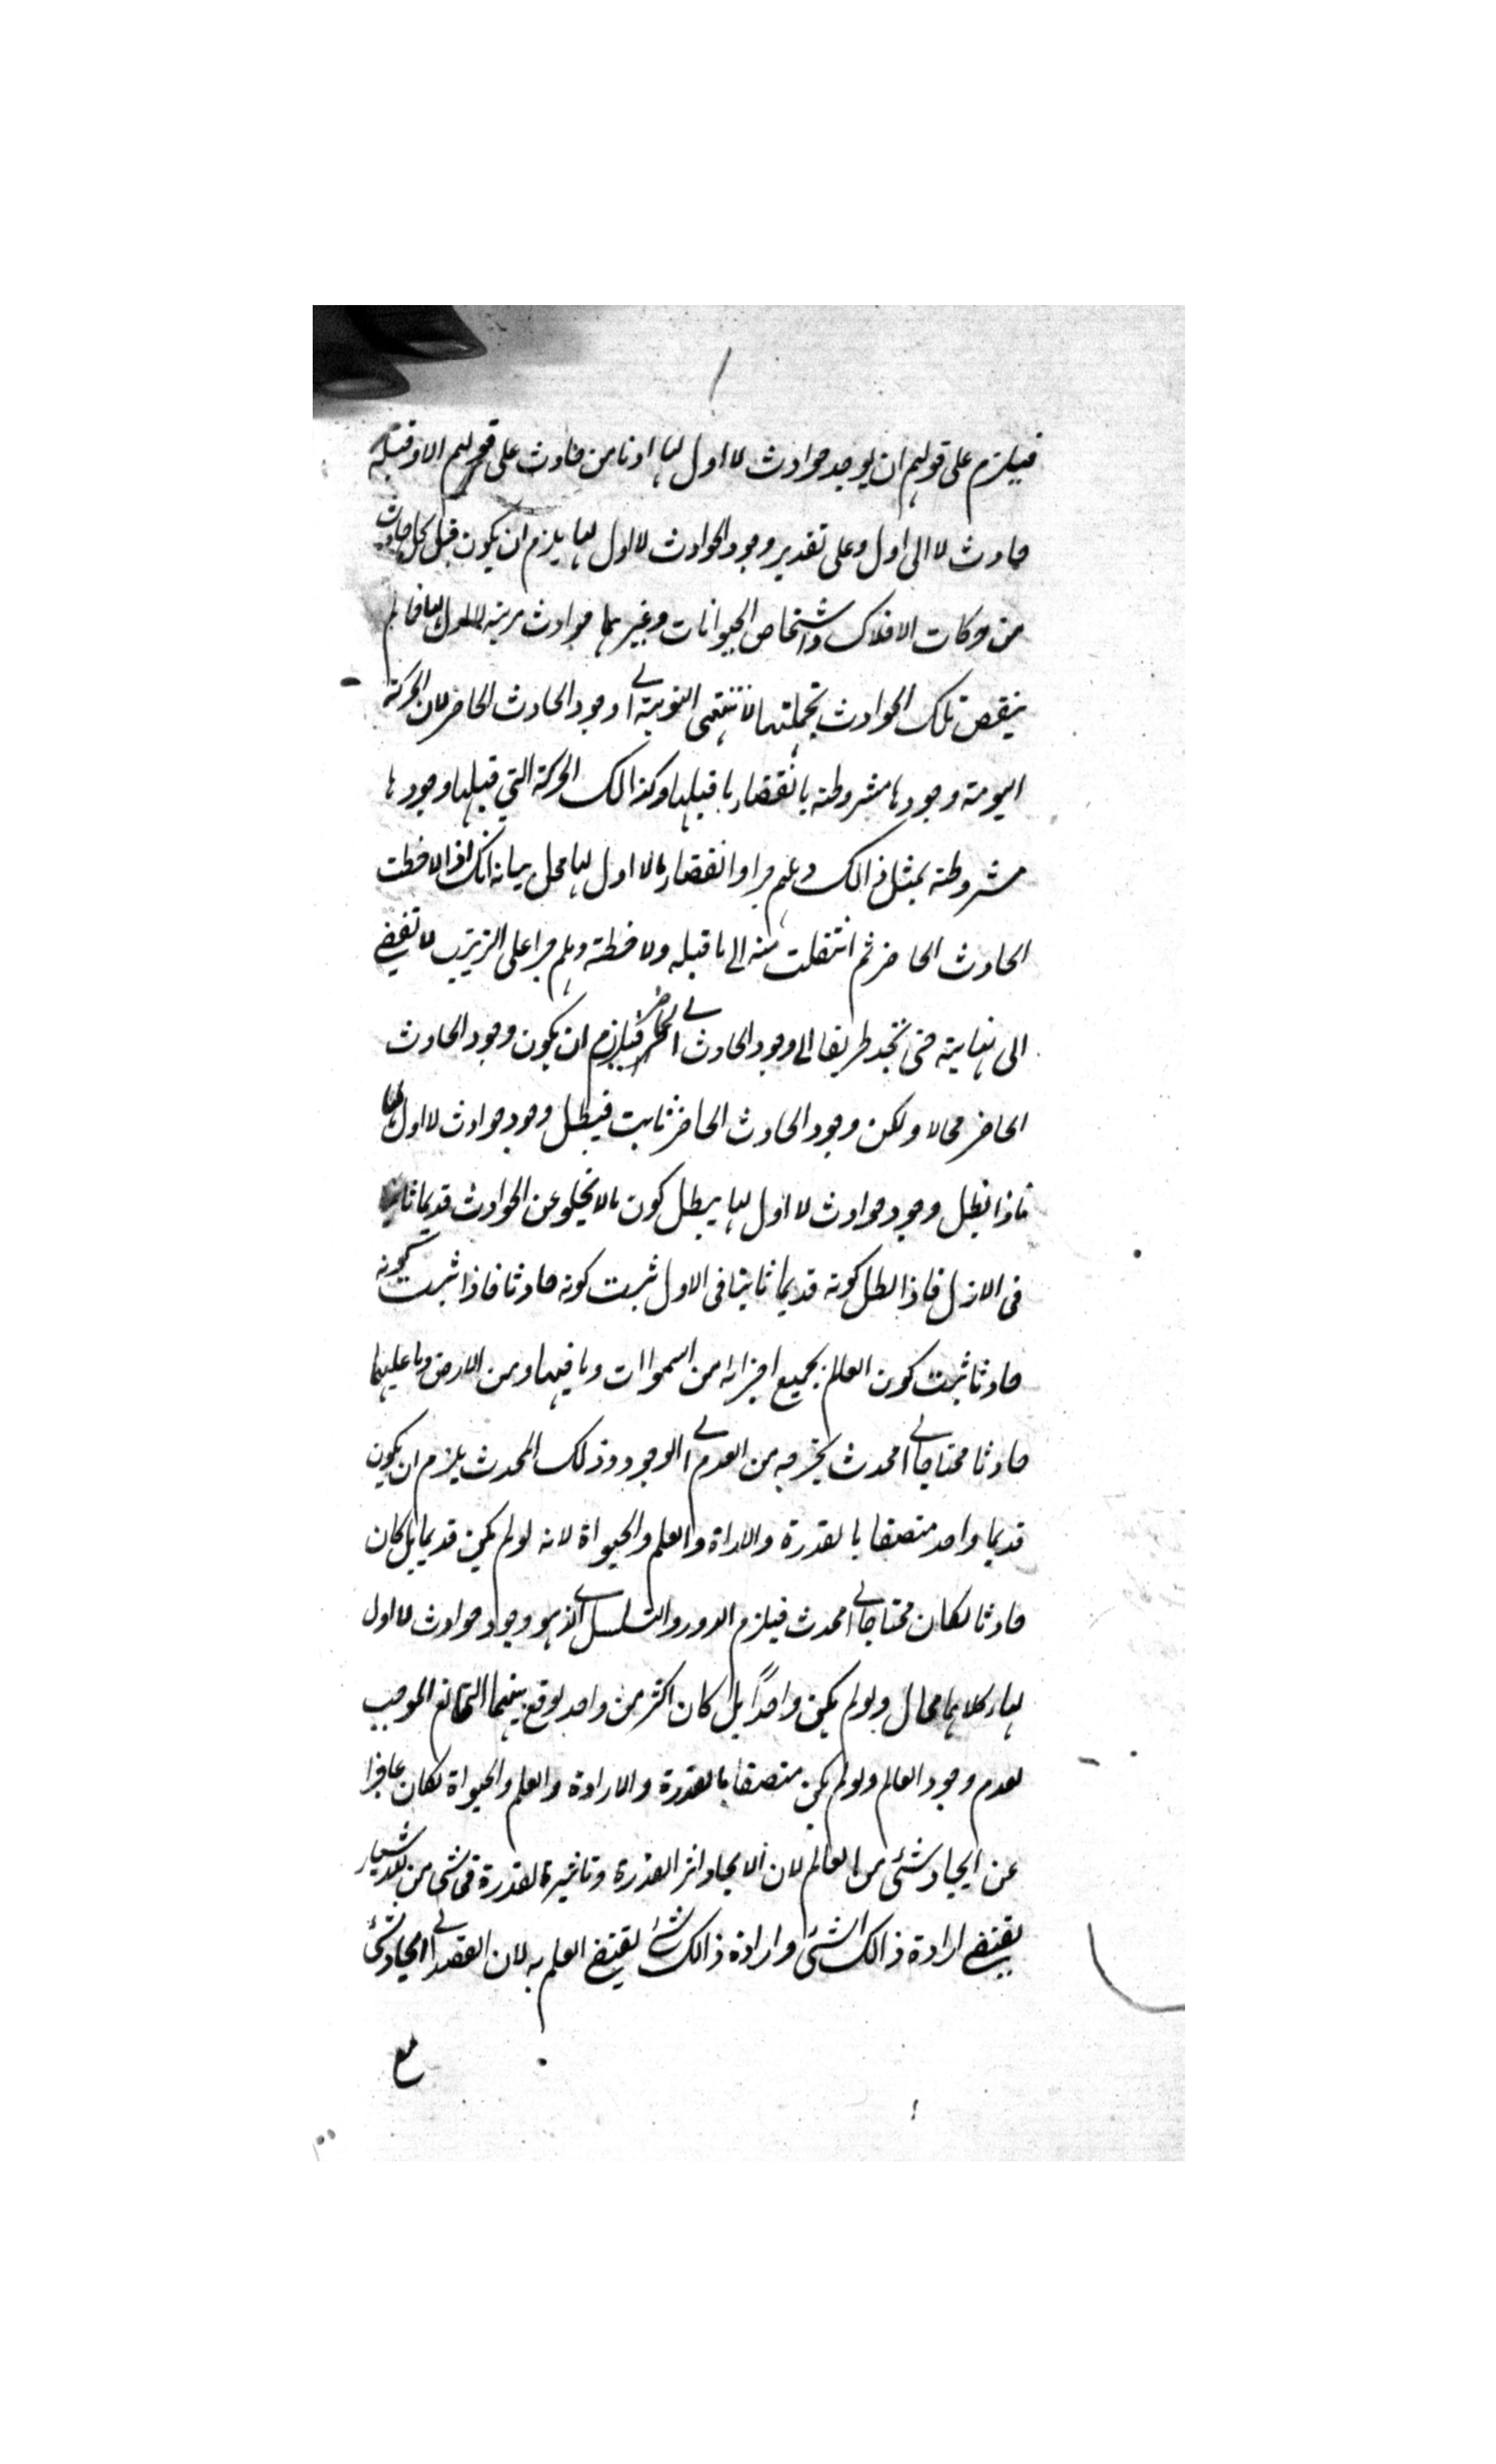 فيلزم على قولهم ان يوجد حوادث لا اول لها اذ ما من حادث على قولهم الا وقبله
حادث لا الى اول وعلى تقدير وجود الحوادث لا اول لها يلزم ان يكون قبل كل حادث
من حركات الافلاك واشخاص الحيوانات وغيرهما حوادث مرتبه لا اول لها فما لم
ينقض تلك الحوادث بجملتها لا تنتهى النوبة الى وجود الحادث الحاضر لان الحركة
اليومية وجودها مشروطة بانقضاء ما قبلها وكذالك الحركة التي قبلها وجودها
مشروطة بمثل ذالك وهلم جرا وانقضاء ما لا اول لها محل بيانه انك اذا لاحظت
الحادث الحاضر ثم انتقلت منه الى ما قبله ولاحظته وهلم جرا على الترتيب لا تفضي
الى نهايية حتى تجد طريقا الى وجود الحادث الى الحاضر فيلزم ان يكون وجود الحادث
الحاضر محالا ولكن وجود الحادث الحاضر ثابت فيبطل وجود حوادث لا اول لها
فاذا بطل وجود حوادث لا اول لها يبطل كون ما لا يخلو عن الحوادث قديما ثابتا
فى الازل فاذا بطل كونه قديما ثابتا فى الاول ثبت كونه حادثا فاذا ثبت كونه
حادثا ثبت كون العالم بجميع اجزائه من السموات وما فيها ومن الارض وما عليها
حادثا محتاجا الى محدث يخرجه من العدم الى الوجود وذلك المحدث يلزم ان يكون
قديما واحد متصفا بالقدرة والاداة والعلم والحيواة لانه لو لم يكن قديما بل كان
حادثا لكان محتاجا الى محدث فيلزم الدور والتسلسل الذى هو وجود حوادث لا اول
لها وكلاهما محال ولو لم يكن واحدًا بل كان اكثر من واحد لوقع بينهما التمانع الموجب
لعدم وجود العالم ولو لم يكن متصفا بالقدرة والارادة والعلم والحيواة لكان عاجزا
عن ايجاد شئ من العالم لان الايجاد اثر القدرة وتاثير القدرة فى شى من الاشياء
يقتضي ارادة ذالك الشئ وارادة ذالك شئ يقتضي العلم به لان القصد الى ايجاد شئ
مع